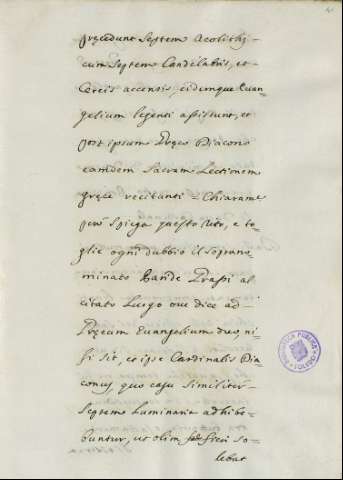 pręcedunt Septem Acolithi,
cum Septem Candelabris, et
Cereis accensis, eidemque Evan=
gelium legenti assistunt, et
post ipsum Gręco Diacono
eamdem Sacram Lectionem
gręce recitanti = Chiaramte
però spiega questo Rito, e to=
glie ogni dubbio il sopranno=
minato Grassi al
citato Luogo ove dice ad
Gręcum Evangelium duo, ni=
si sit, et ipse Cardinalis Dia
conus, quo casu similiter
Septem Luminaria adhibe=
buntur, ut olim fieri so
lebat
BIBLIOTECA PUBLICA
TOLEDO